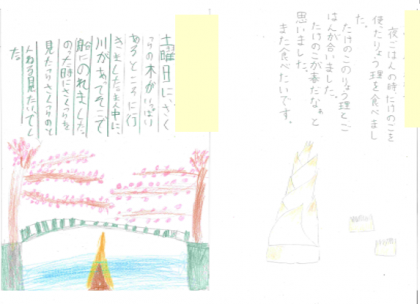 土曜日に、さく
らの木がいっぱい
あるところに行
きました。まん中に、
川があってそこで
船にのれました。
のった時にさくらを
見たらさくらのと
んねる見たいでし
た。
夜ごはんの時たけのこを
使ったりょう理を食べまし
た。
たけのこのりょう理とご
はんが合いました。
たけのこが春だなぁと
思いました。
また食べたいです。